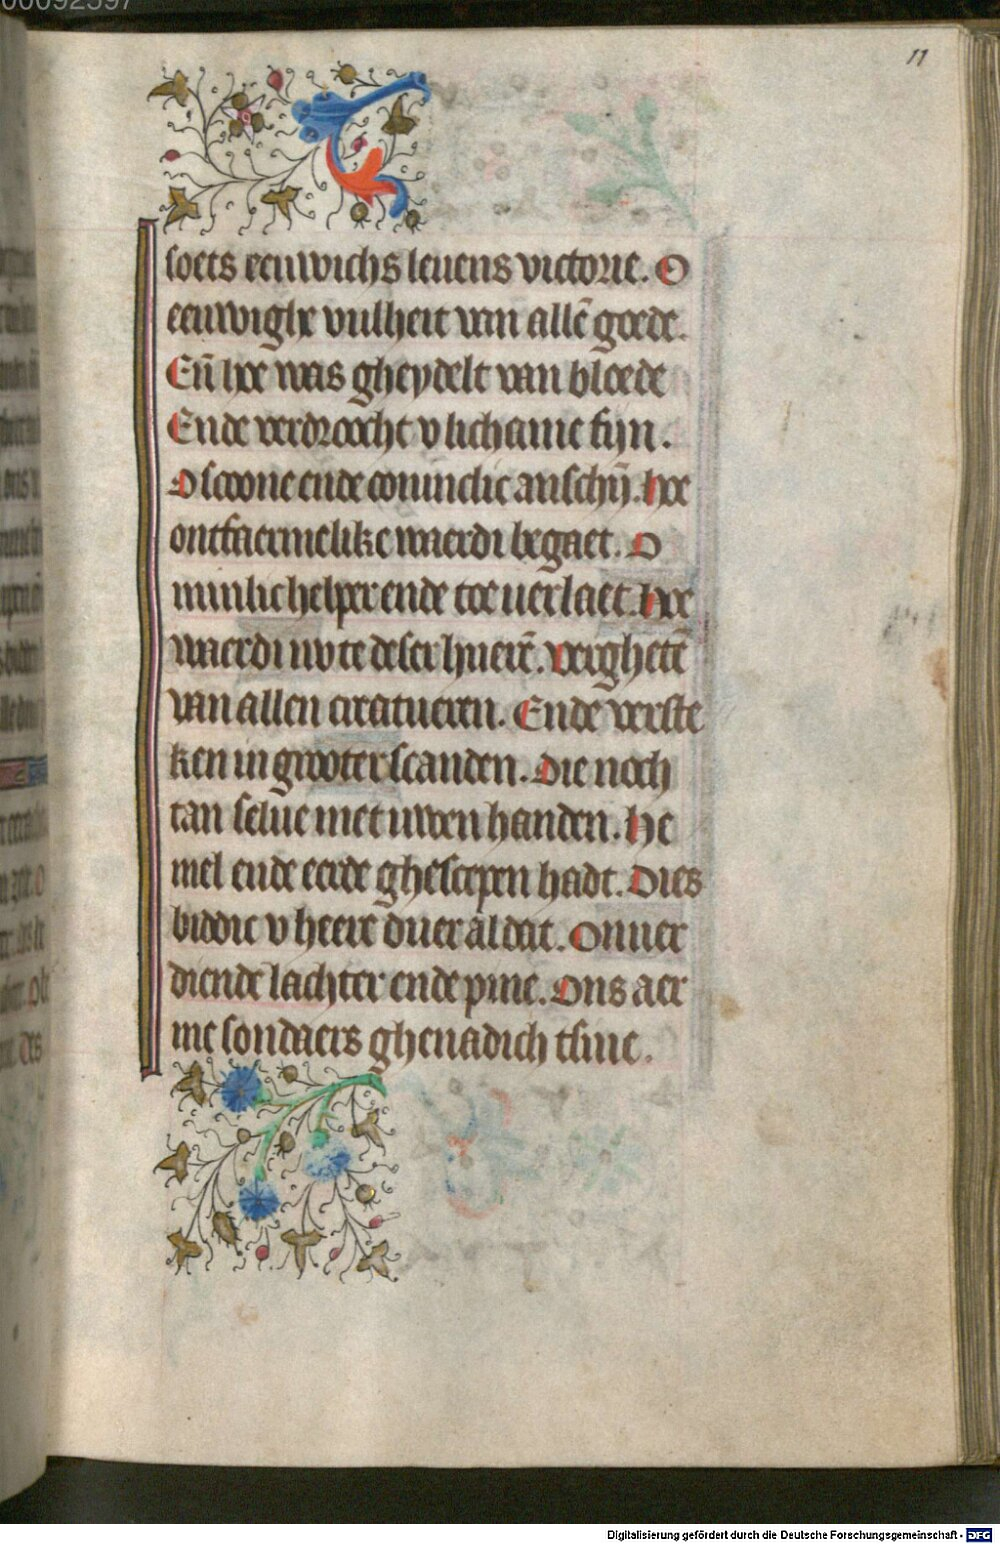 11
soets eeuwichs leuens victorie. O
eeuwighe vulheit van allē goede.
Eñ hoe was gheydelt van bloede
Ende verdroocht v lichame fijn.
O scoone ende coninclic anschȳ. hoe
ontfaermelike waerdi begaet. O
minlic helper ende toe uerlaet. hoe
waerdi nv te deser huerē. verghetē
van allen creatueren. Ende verste
ken in grooter scanden. Die noch
tan selue met uwen handen. he
mel ende eerde ghescepen hadt. Dies
biddic v heere duer al dat. Onuer
diende lachter ende pine. Ons aer
me sondaers ghenadich tsine.
Digitalisierung gefördert durch die Deutsche Forschungsgemeinschaft - DFG